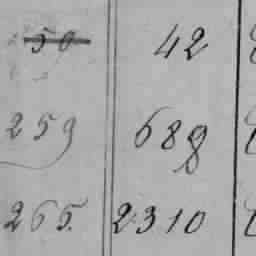 50 42
259 689
265 2310